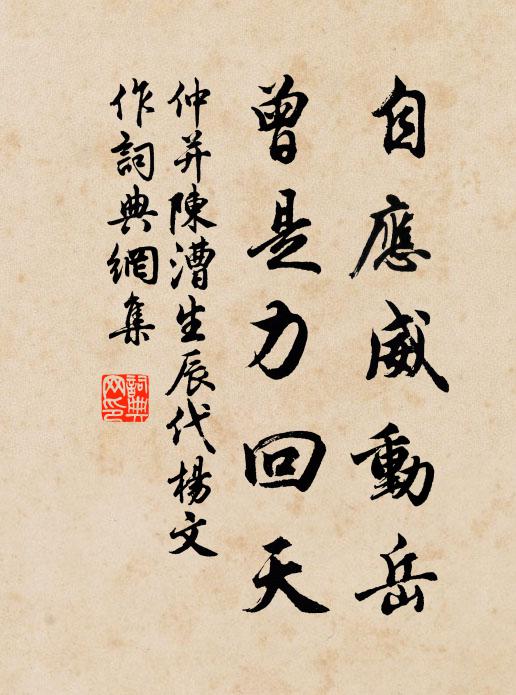 自應威動岳
曾是力回天
仲并陳漕生辰代楊文
作詞典網集
詞典网印